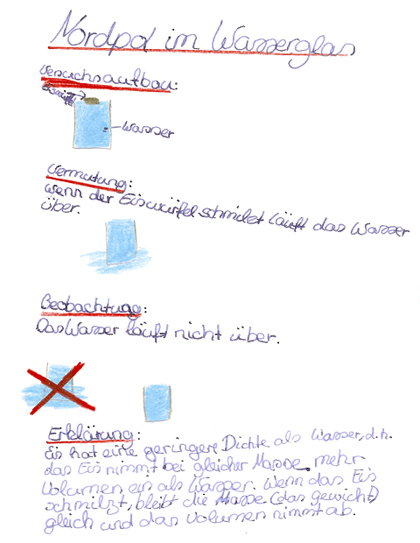 Nordpol im Wasserglas
Versuchsaufbau:
Wasser
Vermutung:
Wenn der Eiswürfel schmilzt läuft das Wasser
über.
Beobachtung:
Das Wasser läuft nicht über.
Erklärung:
Eis hat eine geringere Dichte als Wasser, d.h.
das Eis nimmt bei gleicher Masse mehr
Volumen ein als Wasser. Wenn das Eis
schmilzt, bleibt die Masse (das gewicht)
gleich und das Volumen nimmt ab.